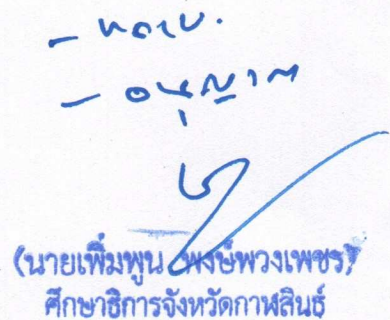 - ทราบ.
- อนุญาต
(นายเพิ่มพูน พงษ์พวงเพชร)
ศึกษาธิการจังหวัดกาฬสินธุ์